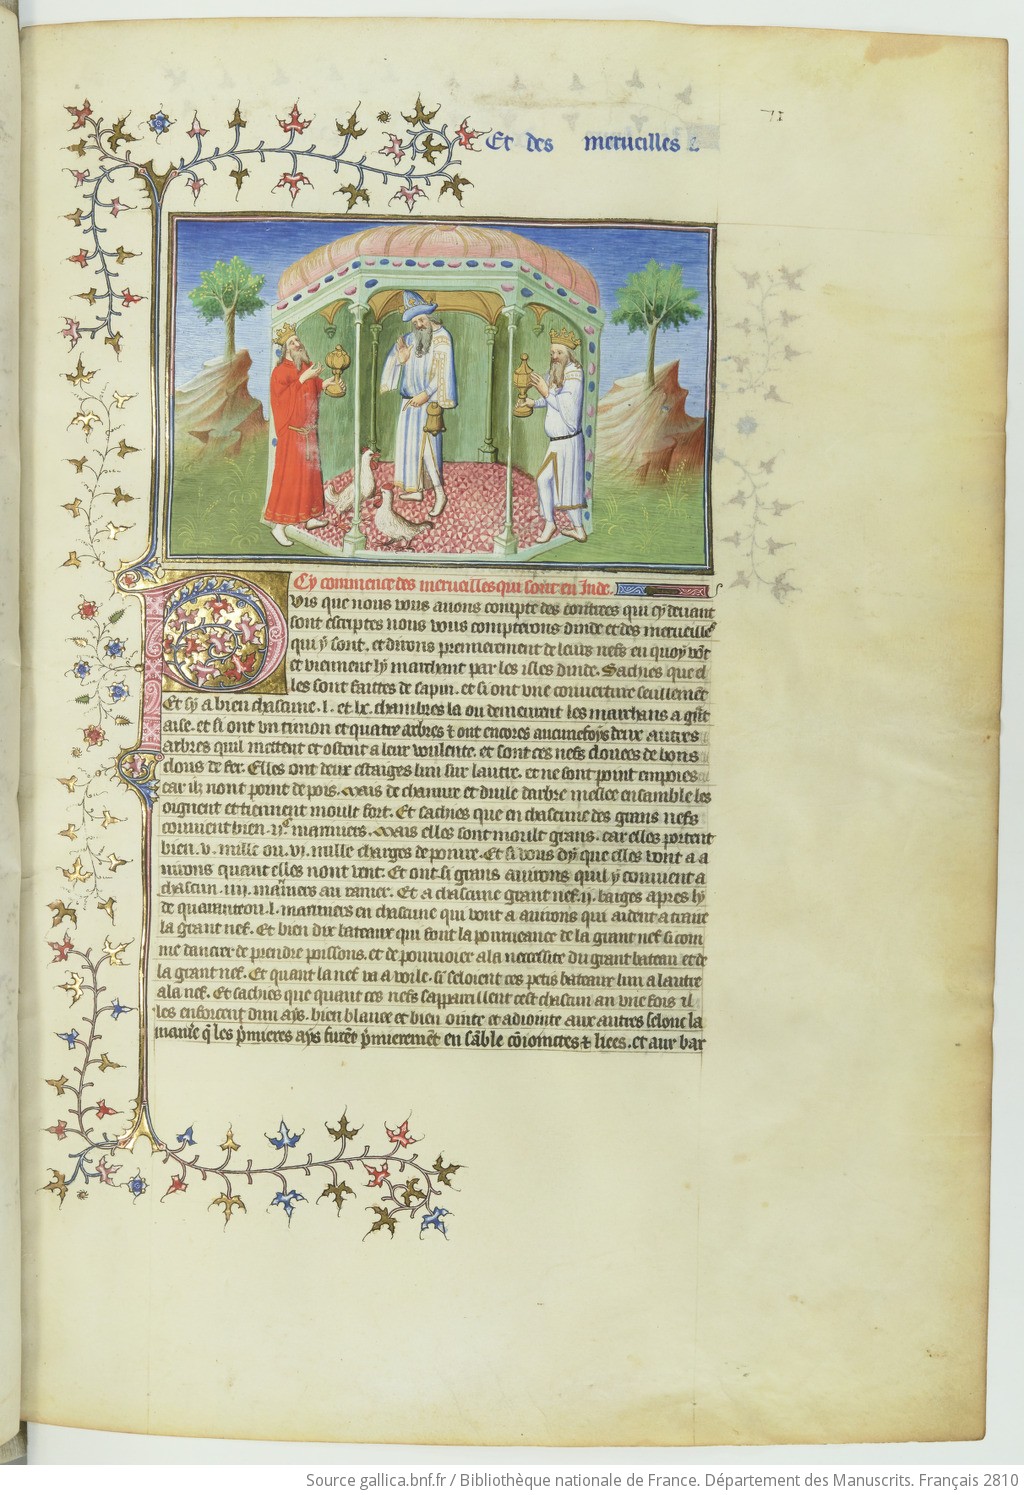 Et des merueilles
71
Cy commence des merueilles qui sont en Inde.
Puis que nous vous auons compte des contrees qui cy deuant
sont escriptes nous vous compterons dinde et des merueilles
qui y sont. et dirons premierement de leurs nefs en quoy võt
et viennent ly marchant par les isles dinde. Sachies que el
les sont faittes de sapin. et si ont vne couuerture seulemẽt
Et sy a bien chascune .l. et lx. chambres la ou demeurent les marchans a grãt
aise. et si ont vn timon et quatre arbres & ont encores aucunefoys deux autres
arbres quil mettent et ostent a leur voulente. et sont ces nefs clouees de bons
clous de fer. Elles ont deux estaiges lun sur lautre. et ne sont point empoies
car ilz nont point de pois. Mais de chanure et duile darbre meslee ensamble les
oignent et tiennent moult fort. Et sachies que en chascune des grans nefs
conuient bien .ijᶜ mariniers. Mais elles sont moult grans. car elles portent
bien .v. mille ou .vj. mille charges de poiure. Et si vous dy que elles vont a a
uirons quant elles nont vent. Et ont si grans auirons quil y conuient a
chascun .iiij. mariners au ranier. Et a chascune grant nef .ij. barges apres ly
de quarante ou .l. mariniers en chascune qui vont a auirons qui aident a traire
la grant nef. Et bien dix bateaux qui font la pourueance de la grant nef si com
me dancrer de prendre poissons. et de pouruoier a la necessite du grant bateau et de
la grant nef. Et quant la nef va a voile. si seloient ces petis bateaux lun a lautre
a la nef. Et sachies que quant ces nefs sappareillent cest chascun an vne fois il
les enforcent dun ays. bien blanee et bien ointe et adiointe aux autres selonc la
maniẽ q̃ les p̃mieres ays furẽt p̃mieremẽt en sãble cõiointes & liees. et aux bar
Source gallica.bnf.fr / Bibliothèque nationale de France. Département des Manuscrits. Français 2810